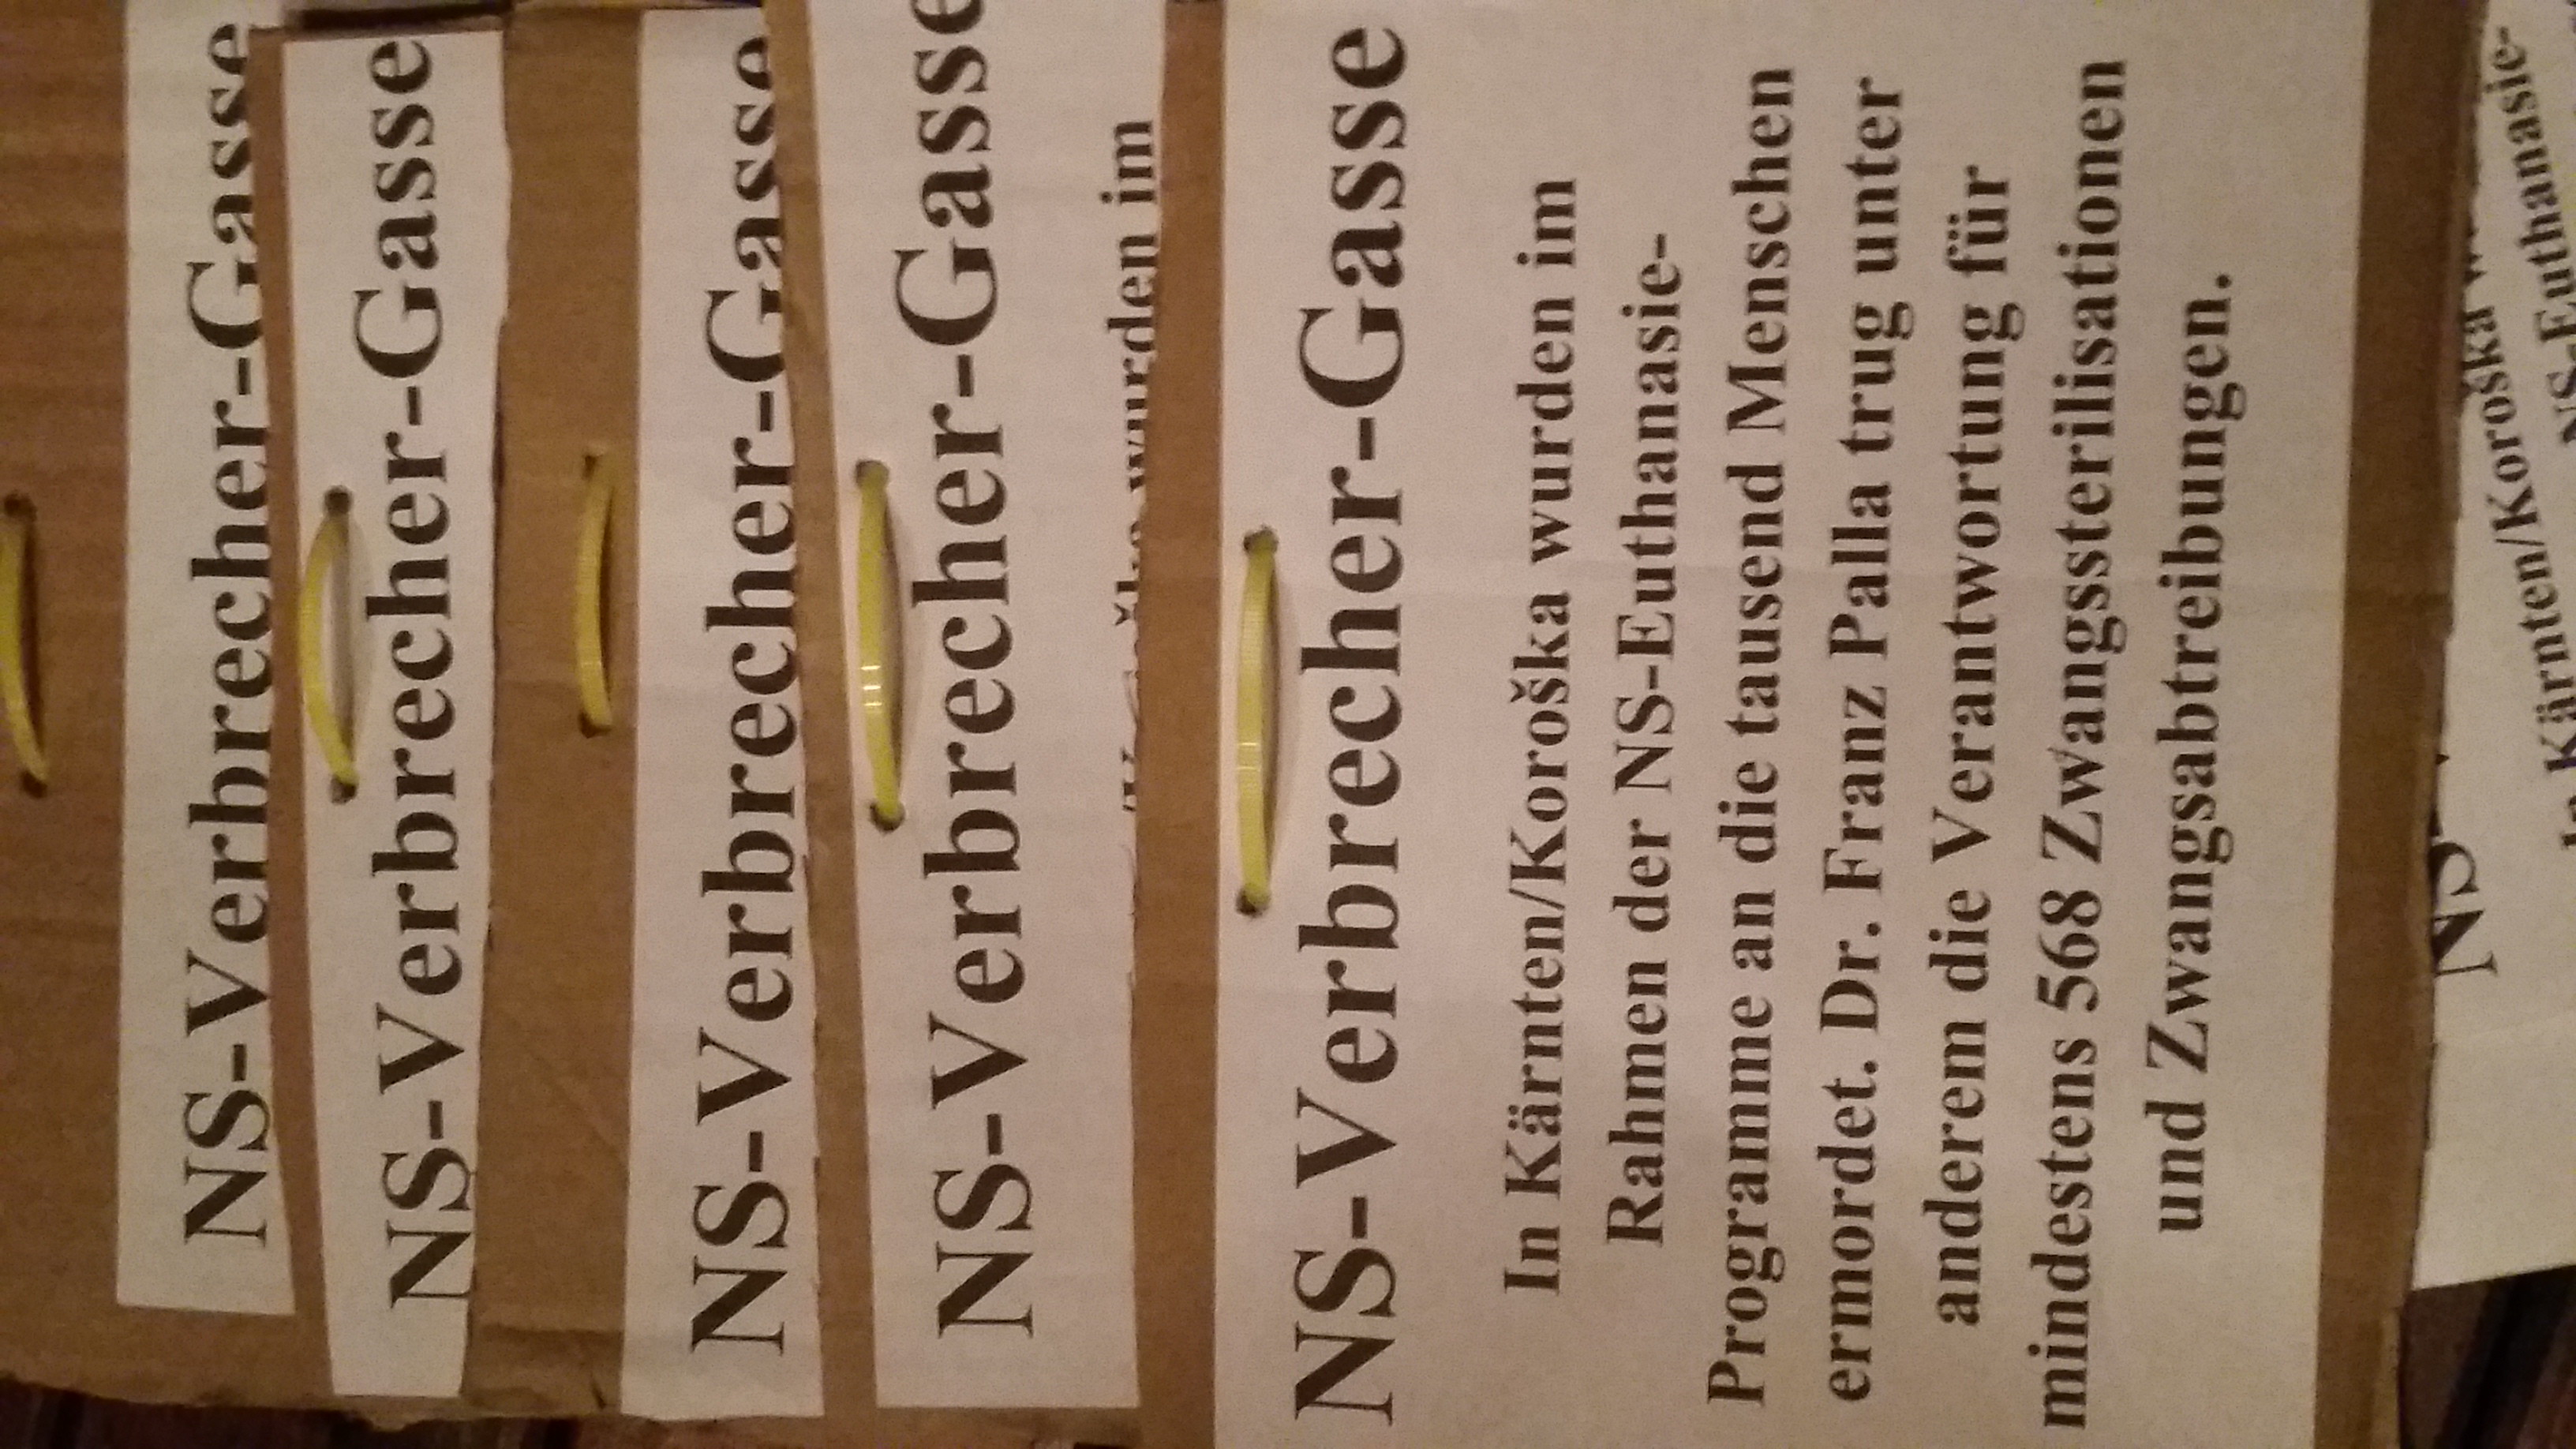 NS-Verbrecher-Gasse
NS-Verbrecher-Gasse
NS-Verbrecher-Gasse
NS-Verbrecher-Gasse
wurden im
NS-Verbrecher-Gasse
In Kärnten/Koroška wurden im
Rahmen der NS-Euthanasie-
Programme an die tausend Menschen
ermordet. Dr. Franz Palla trug unter
anderem die Verantwortung für
mindestens 568 Zwangssterilisationen
und Zwangsabtreibungen.
NS-
In Kärnten/Koroška
NS-Euthanasie-